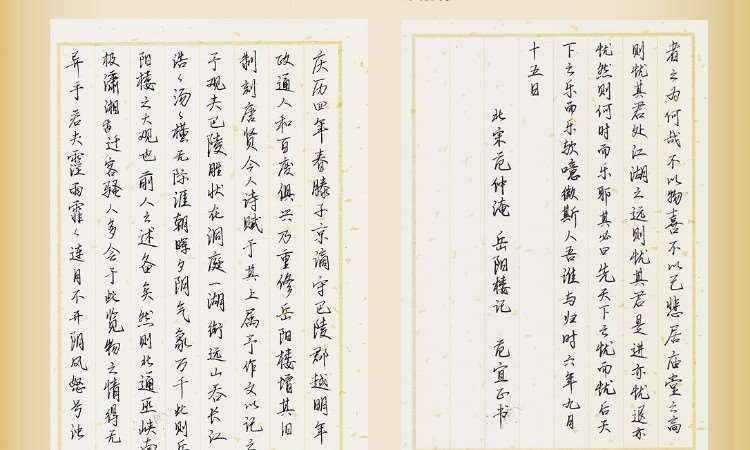 庆历四年春滕子京谪守巴陵郡越明年
政通人和百废俱兴乃重修岳阳楼增其旧
制刻唐贤今人诗赋于其上属予作文以记之
予观夫巴陵胜状在洞庭一湖衔远山吞长江
浩々汤々横无际涯朝晖夕阴气象万千此则岳
阳楼之大观也前人之述备矣然则北通巫峡南
极潇湘迁客骚人多会于此览物之情得无
异乎若夫霪雨霏々连月不开阴风怒号浊
者之为何哉不以物喜不以己悲居庙堂之高
则忧其君处江湖之远则忧其君是进亦忧退亦
忧然则何时而乐耶其必曰先天下之忧而忧后天
下之乐而乐欤噫微斯人吾谁与归时六年九月
十五日
北宋范仲淹 岳阳楼记 范宜正书